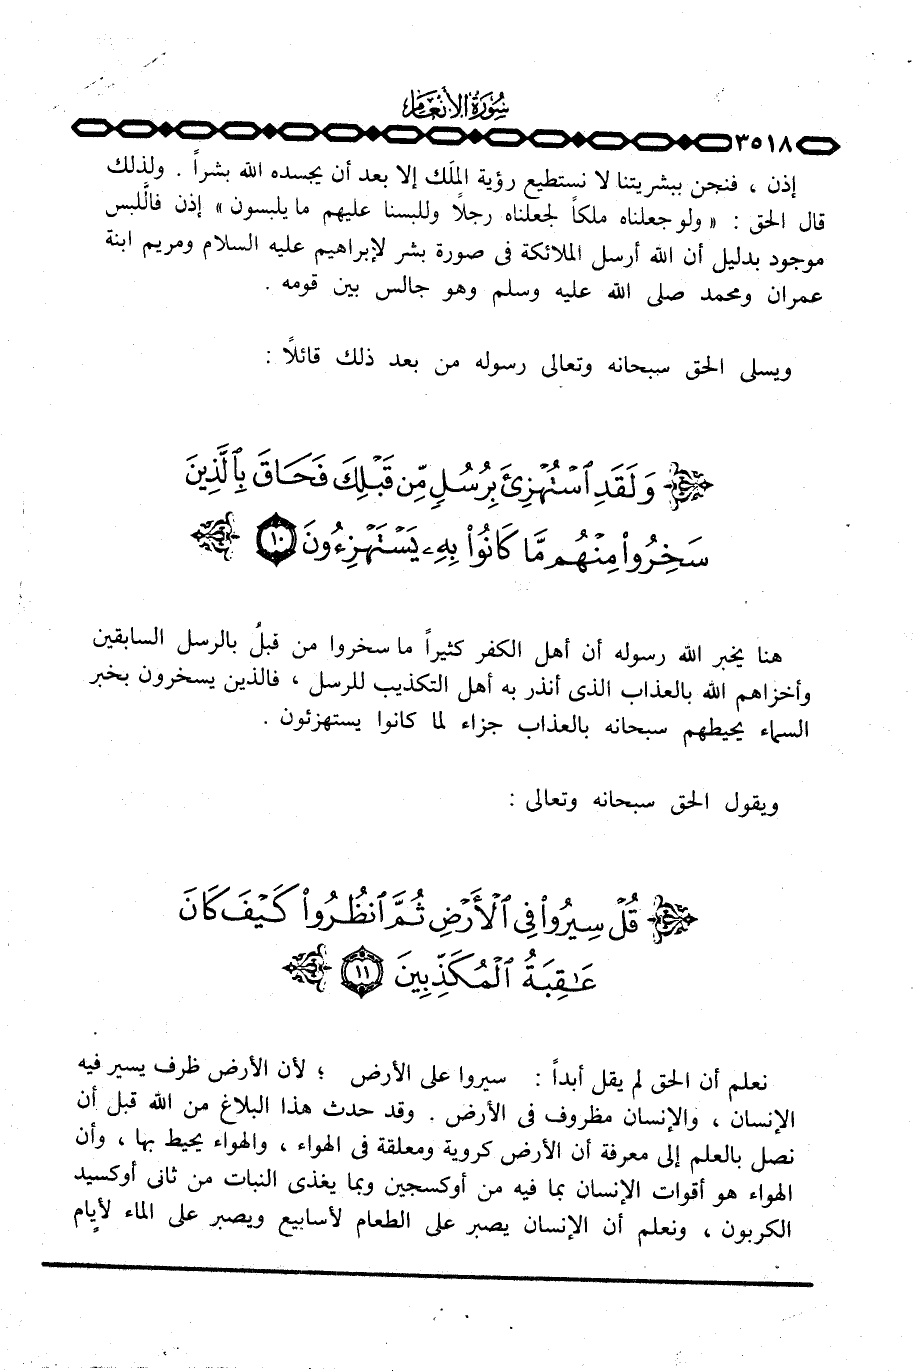 سُورَةُ الأَنْعَامِ
٣٥١٨
إذن ، فنحن ببشريتنا لا نستطيع رؤية الملَك إلا بعد أن يجسده الله بشراً . ولذلك
قال الحق : « ولو جعلناه ملكاً لجعلناه رجلًا وللبسنا عليهم ما يلبسون » إذن فاللَّبس
موجود بدليل أن الله أرسل الملائكة فى صورة بشر لإبراهيم عليه السلام ومريم ابنة
عمران ومحمد صلى الله عليه وسلم وهو جالس بين قومه .
ويسلى الحق سبحانه وتعالى رسوله من بعد ذلك قائلًا :
وَلَقَدِ ٱسْتُهْزِئَ بِرُسُلٍ مِّن قَبْلِكَ فَحَاقَ بِٱلَّذِينَ
سَخِرُوا۟ مِنْهُم مَّا كَانُوا۟ بِهِۦ يَسْتَهْزِءُونَ ١٠
هنا يخبر الله رسوله أن أهل الكفر كثيراً ما سخروا من قبلُ بالرسل السابقين
وأخزاهم الله بالعذاب الذى أنذر به أهل التكذيب للرسل ، فالذين يسخرون بخبر
السماء يحيطهم سبحانه بالعذاب جزاء لما كانوا يستهزئون .
ويقول الحق سبحانه وتعالى :
قُلْ سِيرُوا۟ فِى ٱلْأَرْضِ ثُمَّ ٱنظُرُوا۟ كَيْفَ كَانَ
عَٰقِبَةُ ٱلْمُكَذِّبِينَ ١١
نعلم أن الحق لم يقل أبداً : سيروا على الأرض ؛ لأن الأرض ظرف يسير فيه
الإنسان ، والإنسان مظروف فى الأرض . وقد حدث هذا البلاغ من الله قبل أن
نصل بالعلم إلى معرفة أن الأرض كروية ومعلقة فى الهواء ، والهواء يحيط بها ، وأن
الهواء هو أقوات الإنسان بما فيه من أوكسجين وبما يغذى النبات من ثانى أوكسيد
الكربون ، ونعلم أن الإنسان يصبر على الطعام لأسابيع ويصبر على الماء لأيام